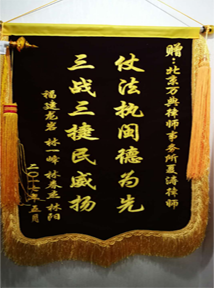 赠:北京万典律师事务所夏涛律师
仗法执闽德为先
三战三捷民威扬
福建龙岩 林一峰 林春燕 林阳
二〇一七年五月